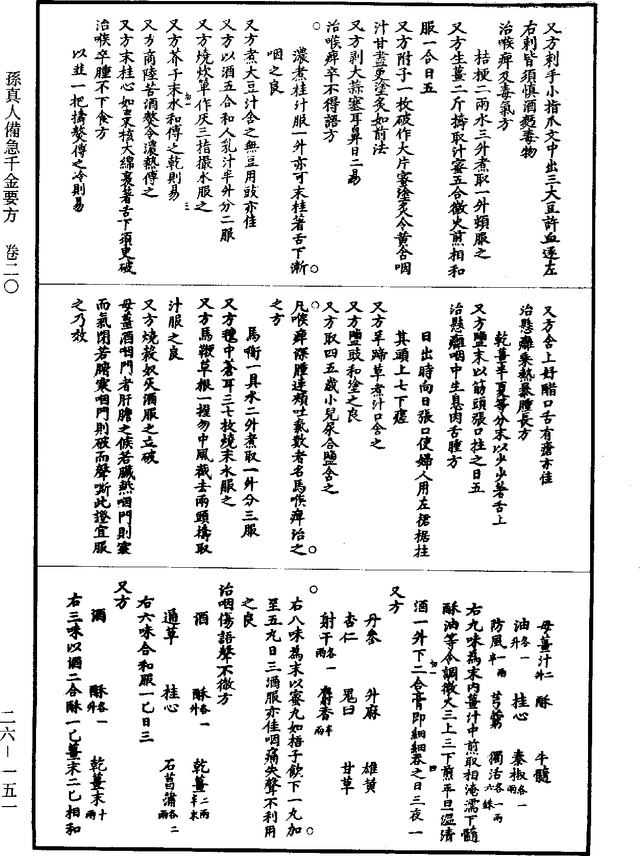 孫真人備急千金要方　卷二〇
二六－一五一
又方刺手小指爪文中出三大豆許血逐左
右刺皆須慎酒麪毒物
治喉痺及毒氣方
桔梗二兩水三升煮取一升頓服之
又方生薑二斤擣取汁蜜五合微火煎相和
服一合日五
又方附子一枚破作大片蜜塗炙令黃含咽
汁甘盡更塗炙如前法
又方剥大蒜塞耳鼻日二易
治喉痺卒不得語方
濃煮桂汁服一升亦可末桂著舌下漸
咽之良
又方煮大豆汁含之無豆用豉亦佳
又方以酒五合和人乳汁半升分二服
又方燒炊箄作灰三指撮水服之
又方芥子末水和傅之乾則易
又方商陸苦酒熬令濃熱傅之
又方末桂心如棗核大綿裹著舌下須臾破
治喉卒腫不下食方
以韮一把擣熬傅之冷則易
又方含上好醋口舌有瘡亦佳
治懸癰咽熱暴腫長方
乾薑半夏等分末以少少著舌上
又方鹽末以筯頭張口柱之日五
治懸癰咽中生息肉舌腫方
日出時向日張口使婦人用左裙裾拄
其頭上七下瘥
又方羊蹄草煮汁口含之
又方鹽豉和塗之良
又方取四五歲小兒尿合鹽含之
凡喉痺深腫連頰吐氣數者名馬喉痺治之
之方
馬銜一具水二升煮取一升分三服
又方氊中蒼耳三七枚燒末水服之
又方馬鞭草根一握勿中風截去兩頭擣取
汁服之良
又方燒穀奴灰酒服之立破
母薑酒咽門者肝膽之候若臟熱咽門則塞
而氣閉若腑寒咽門則破而聲嘶此證宜服
之乃效
母薑汁二升　酥　牛髓
油各一升　桂心　秦椒各一兩
防風一兩半　芎藭　獨活各一兩六銖
右九味為末內薑汁中煎取相淹濡下髓
酥油等令調微火三上三下煎平旦温清
酒一升下二合膏即細細吞之日三夜一
又方
丹參　升麻　雄黃
杏仁　鬼臼　甘草
射干各一兩　麝香半兩
右八味為末以蜜丸如梧子飲下一丸加
至五丸日三酒服亦佳咽痛失聲不利用
之良
治咽傷語聲不徹方
酒　酥各一升　乾薑二兩半末
通草　桂心　石菖蒲各二兩
右六味合和服一匕日三
又方
酒　酥各一升　乾薑末十兩
右三味以酒二合酥一匕薑末二匕相和